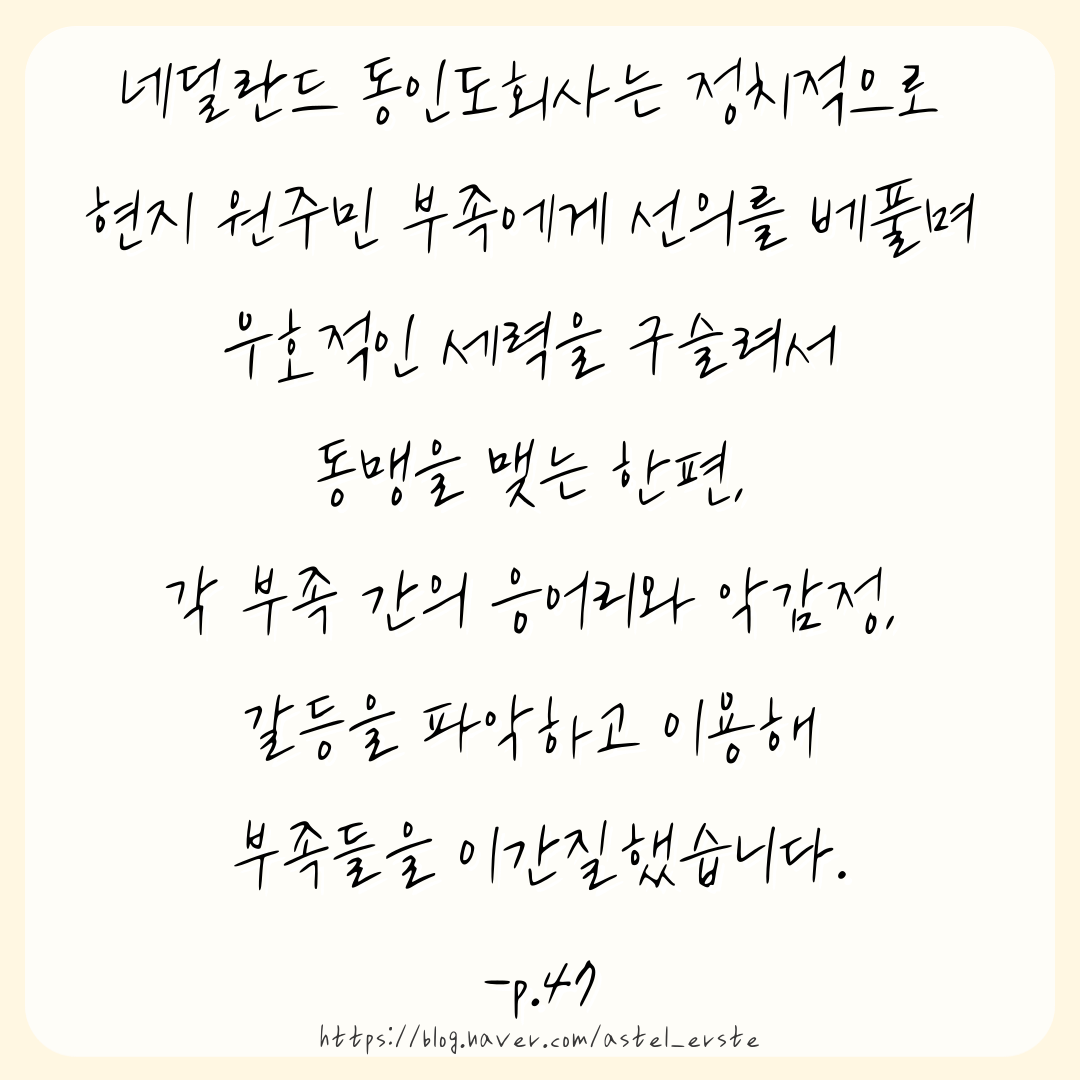 네덜란드 동인도회사는 정치적으로
현지 원주민 부족에게 선의를 베풀며
우호적인 세력을 구슬려서
동맹을 맺는 한편,
각 부족 간의 응어리와 악감정,
갈등을 파악하고 이용해
부족들을 이간질했습니다.
-p.47
https://blog.naver.com/astel_erste